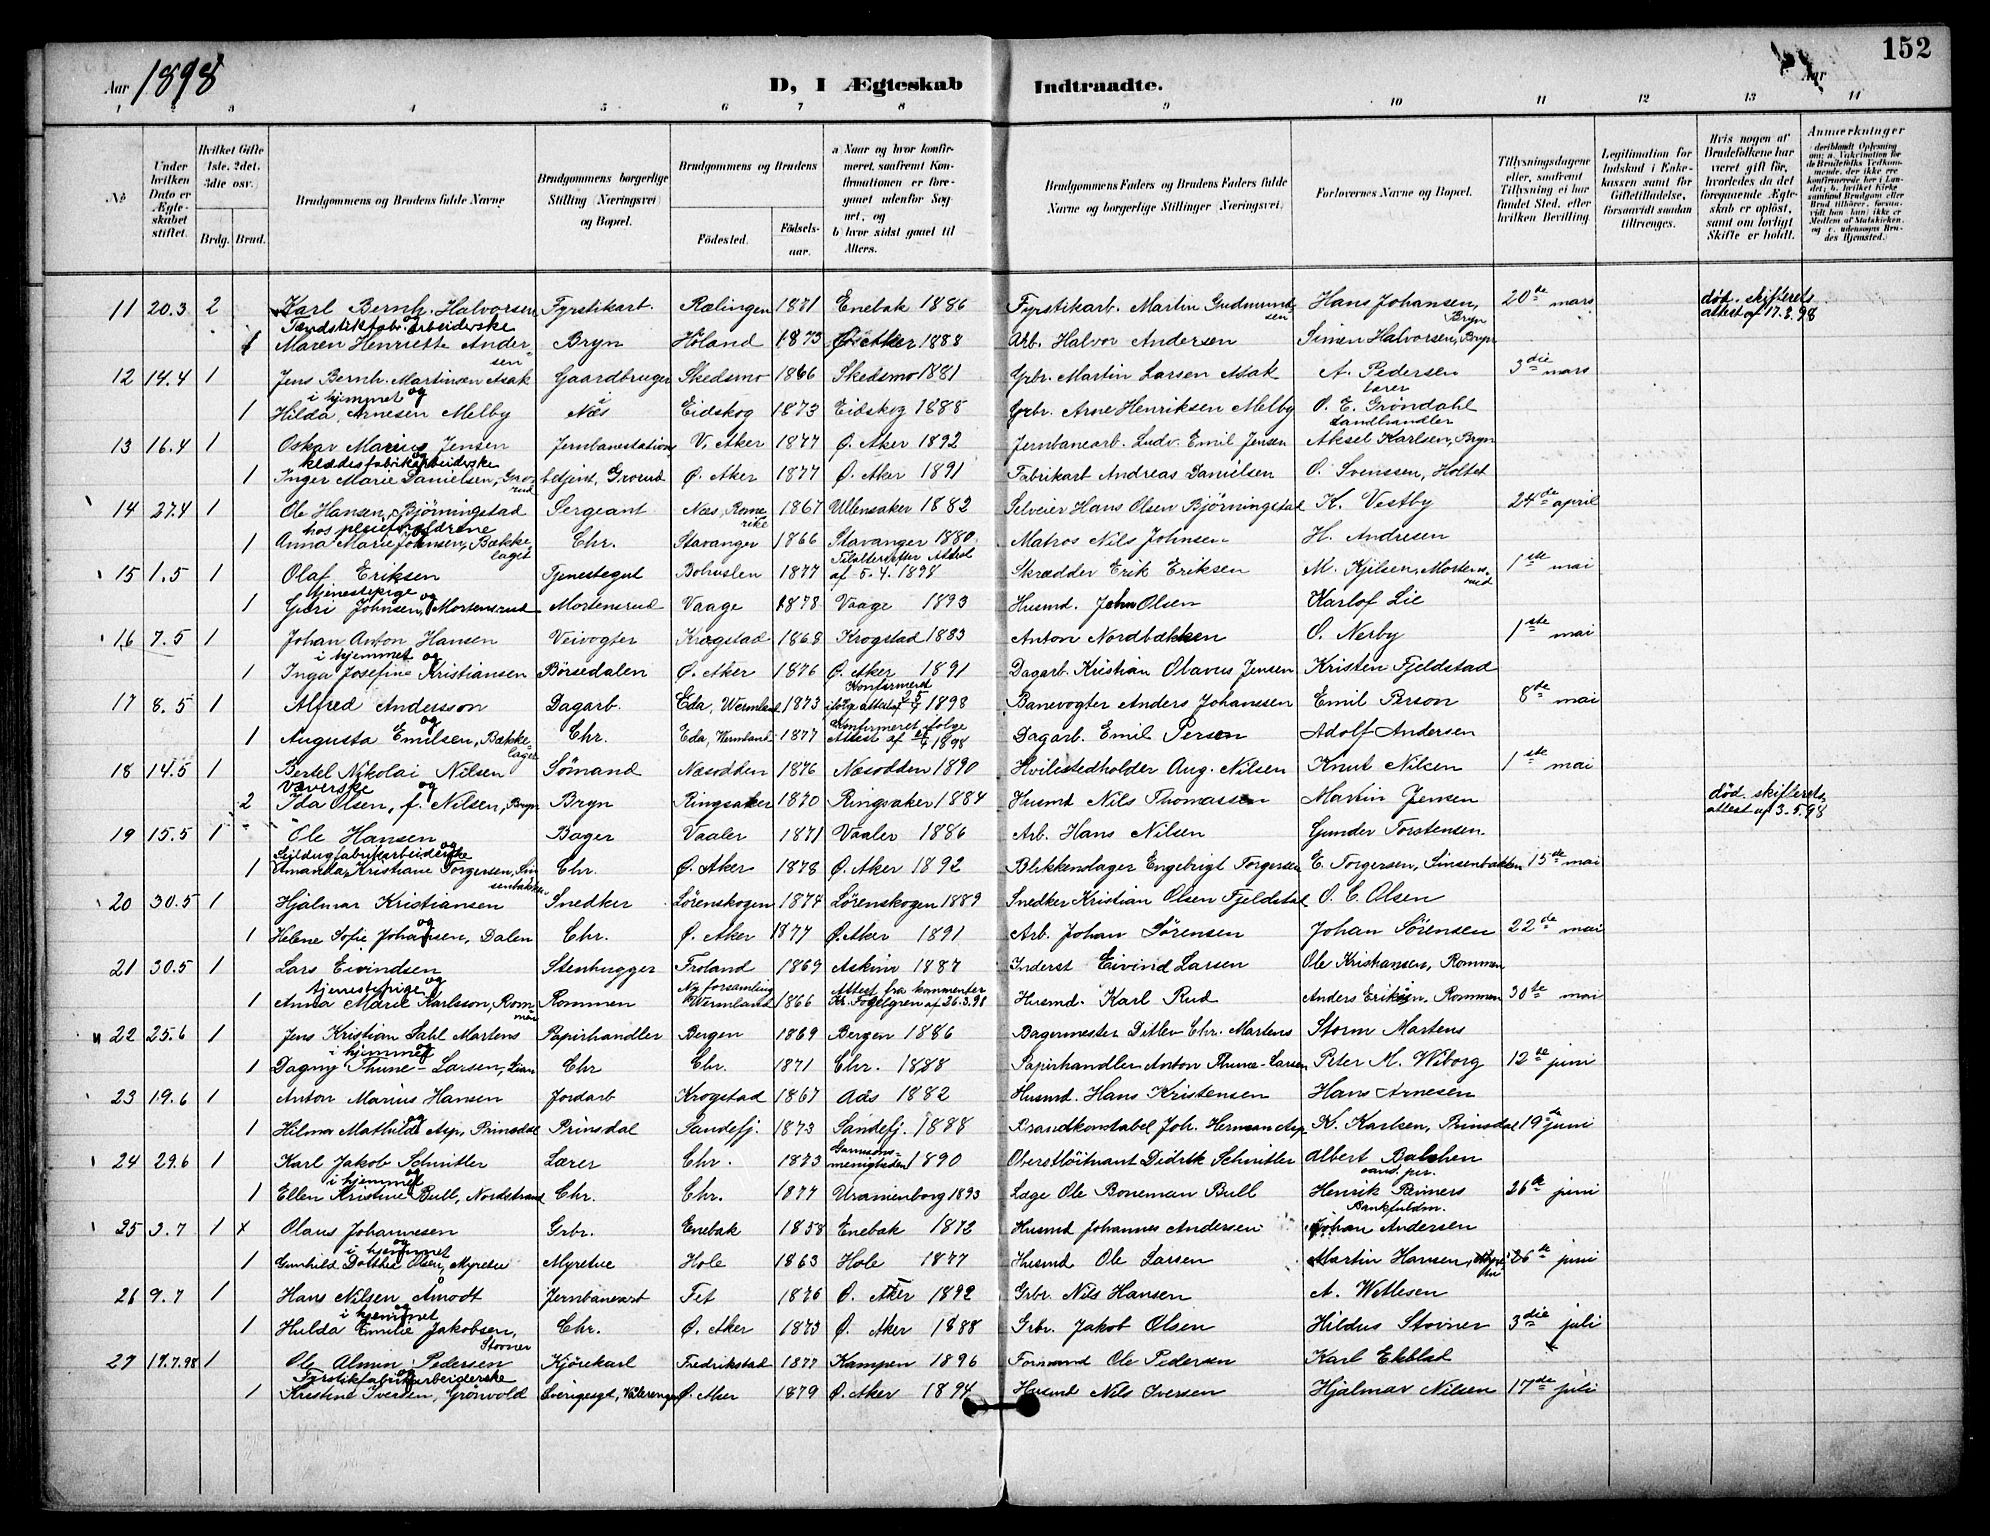 152
Aar 1898
D, I Ægteskab Indtraadte.
Aar
1 2 3 4 5 6 7 8 9 10 11 12 13 14
No
Under hvilken Dato er Ægteskabet stiftet.
Hvilket Gifte (1ste, 2det, 3die osv.)
Brdg. Brud.
Brudgommens og Brudens fulde Navne
Brudgommens borgerlige Stilling (Næringsvei) og Bopæl.
Brudgommens og Brudens
Fødested.
Fødselsaar.
a) Naar og hvor konfirmeret, saafremt Konfirmationen er foregaaet udenfor Sognet, og b) hvor sidst gaaet til Alters.
Brudgommens Faders og Brudens Faders fulde Navne og borgerlige Stillinger (Næringsvei)
Forlovernes Navne og Bopæl.
Tillysningsdagene eller, saafremt Tillysning ei har fundet Sted, efter hvilken Bevilling
Legitimation for Indskud i Enkekassen samt for Giftetilladelse, forsaavidt saadan tiltrænges.
Hvis nogen af Brudefolkene har været gift før, hvorledes da det foregaaende Ægteskab er opløst, samt om lovligt Skifte er holdt.
Anmærkninger
11 20.3 2 Karl Bernh. Halvorsen Fyrstikarb. Rælingen 1871 Enebak 1886 Fyrstikarb. Martin Gudmundsen Hans Johansen, Bryn 20de mars død. skifterets attest af 17.3.98
Tændstikfab. arbeiderske og
1 Maren Henriette Andersen Bryn Höland 1873 Ø. Aker 1888 Arb. Halvor Andersen Simen Halvorsen, Bryn
12 14.4 1 Jens Bernh. Martinsen Asak Gaardbruger Skedsmo 1866 Skedsmo 1881 Grbr. Martin Larsen Asak A. Pedersen lærer 3die mars
i hjemmet og
1 Hilda Arnesen Melby i Næs Eidskog 1873 Eidskog 1888 Grbr. Arne Henriksen Melby O. E. Grøndahl Landhandler
13 16.4 1 Oskar Marius Jensen Jernbanestations V. Aker 1877 Ø. Aker 1892 Jernbanearb. Ludv. Emil Jensen Aksel Karlsen, Bryn
klædesfabrikarbeiderske og
1 Inger Marie Danielsen, Grorud betjent, Grorud Ø. Aker 1877 Ø. Aker 1891 Fabrikarb Andreas Danielsen O. Svenssen, Holtet
14 27.4 1 Ole Hansen Bjørningstad Sergeant Næs, Romerike 1867 Ullensaker 1882 Selveier Hans Olsen Bjørningstad K. Vestby 24de april
hos pleieforældrene og
1 Anna Marie Johnsen, Bækkelaget Chr. Stavanger 1866 Stavanger 1880. Matros Nils Johnsen H. Andresen
15 1.5 1 Olaf Eriksen Tjenestegut Bohuslen 1877 af 5.4.1898 Skrædder Erik Eriksen M. Kjilsen, Mortensrud 1ste mai
tjenestepige og
1 Guri Johnsen, Mortensrud Mortensrud Vaage 1878 Vaage 1893 Husmd. John Olsen Karlof Lie
16 7.5 1 Johan Anton Hansen Veivogter Krogstad 1868 Krogstad 1883 Anton Nordbækken O. Nerby 1ste mai
i hjemmet og
1 Inga Josefine Kristiansen Börsedalen Ø. Aker 1876 Ø. Aker 1891 Dagarb. Kristian Olavus Jensen Kristen Fjeldstad
17 8.5 1 Alfred Andersson Dagarb. Eda, Wermland 1873 Konfirmeret ifølg attest af 1898 Banevogter Anders Johanssen Emil Person 8de mai
og
1 Augusta Emilsen, Bækkelaget Chr. Eda, Wermland 1877 Konfirmeret ifølge Attest af 1898 Dagarb. Emil Person Adolf Andersen
18 14.5 1 Bertel Nikolai Nilsen Sömand Næsodden 1876 Næsodden 1890 Hvilestedholder Aug. Nilsen Knut Nilsen 1ste mai
Væverske og
2 Ida Olsen, f. Nilsen, Bryn Bryn Ringsaker 1870 Ringsaker 1884 Husmd Nils Thomassen Martin Jensen død. skifterets attest af 3.5.98
19 15.5 1 Ole Hansen Bager Vaaler 1871 Vaaler 1886 Arb. Hans Nilsen Gunder Torstensen
Seildugfabrikarbeiderske og
1 Amanda Kristiane Torgersen, Sinsenbakken Chr. Ø. Aker 1878 Ø. Aker 1892 Blikkenslager Engebrigt Torgersen E. Torgersen, Sinsenbakken 15de mai
20 30.5 1 Hjalmar Kristiansen Snedker Lörenskogen 1874 Lörenskogen 1889 Snedker Kristian Olsen Fjeldstad O. C. Olsen
og
1 Helene Sofie Johansen, Dalen Chr. Ø. Aker 1877 Ø. Aker 1891 Arb. Johan Sørensen Johan Sørensen 22de mai
21 30.5 1 Lars Eivindsen Stenhugger Froland 1869 Askim 1887 Inderst Eivind Larsen Ole Kristiansen, Rommen
tjenestepige og
1 Anna Marie Karlsson, Rommen Rommen Ny forsamling Wermland 1866 Attest fra Kr. Fogelgren af 26.3.98 Husmd. Karl Rud Anders Eriksen, Rommen 30te mai
22 25.6 1 Jens Kristian Dahl Martens Papirhandler Bergen 1869 Bergen 1886 Bagermester Ditlev Chr. Martens Storm Martens
i hjemmet og
1 Dagny Thune-Larsen, Lian Chr Chr. 1871 Chr. 1888 Papirhandler Anton Thune-Larsen Peter M. Wiborg 12te juni
23 19.6 1 Anton Marius Hansen Jordarb Krogstad 1867 Aas 1882 Husmd. Hans Kristensen Hans Arnesen
og
1 Hilma Mathilde Asp, Prinsdal Prinsdal Sandefj. 1873 Sandefj. 1888 Brandkonstabel Joh. Herman Asp K. Karlsen, Prinsdal 19de juni
24 29.6 1 Karl Jakob Schnitler Lærer Chr. 1873 Garnisonsmenigheden 1890 Oberstlöitnant Didrik Schnitler Albert Balchen
i hjemmet og
1 Ellen Kristine Bull, Nordstrand Chr. Chr. 1877 Uranienborg 1893 Læge Ole Boneman Bull Henrik Reiners Bankfuldm. 26de juni
25 3.7 1 x Olaus Johannesen Grbr. Enebak 1858 Enebak 1872 Husmd Johannes Andersen Johan Andersen
i hjemmet og
1 Gunhild Dorthe Olsen, Myrelue Myrelue Hole 1863 Hole 1877 Husmd Ole Larsen Martin Hansen, 26de juni
26 9.7 1 Hans Nilsen Åmodt Jernbanearb Fet 1876 Ø. Aker 1892 Grbr. Nils Hansen A. Wetlesen
i hjemmet og
1 Hulda Emilie Jakobsen, Stovner Chr. Ø. Aker 1873 Ø. Aker 1888 Grbr. Jakob Olsen Hildus Stovner 3die juli
27 17.7.98 1 Ole Almin Pedersen Kjörekarl Fredrikstad 1877 Kampen 1896 Formand Ole Pedersen Karl Ekblad
Fyrstikfabrikarbeiderske
1 Kristine Iversen, Grönvold Sverigesgt, Vålerengen Ø. Aker 1879 Ø. Aker 1894 Husmd Nils Iversen Hjalmar Nilsen 17de juli